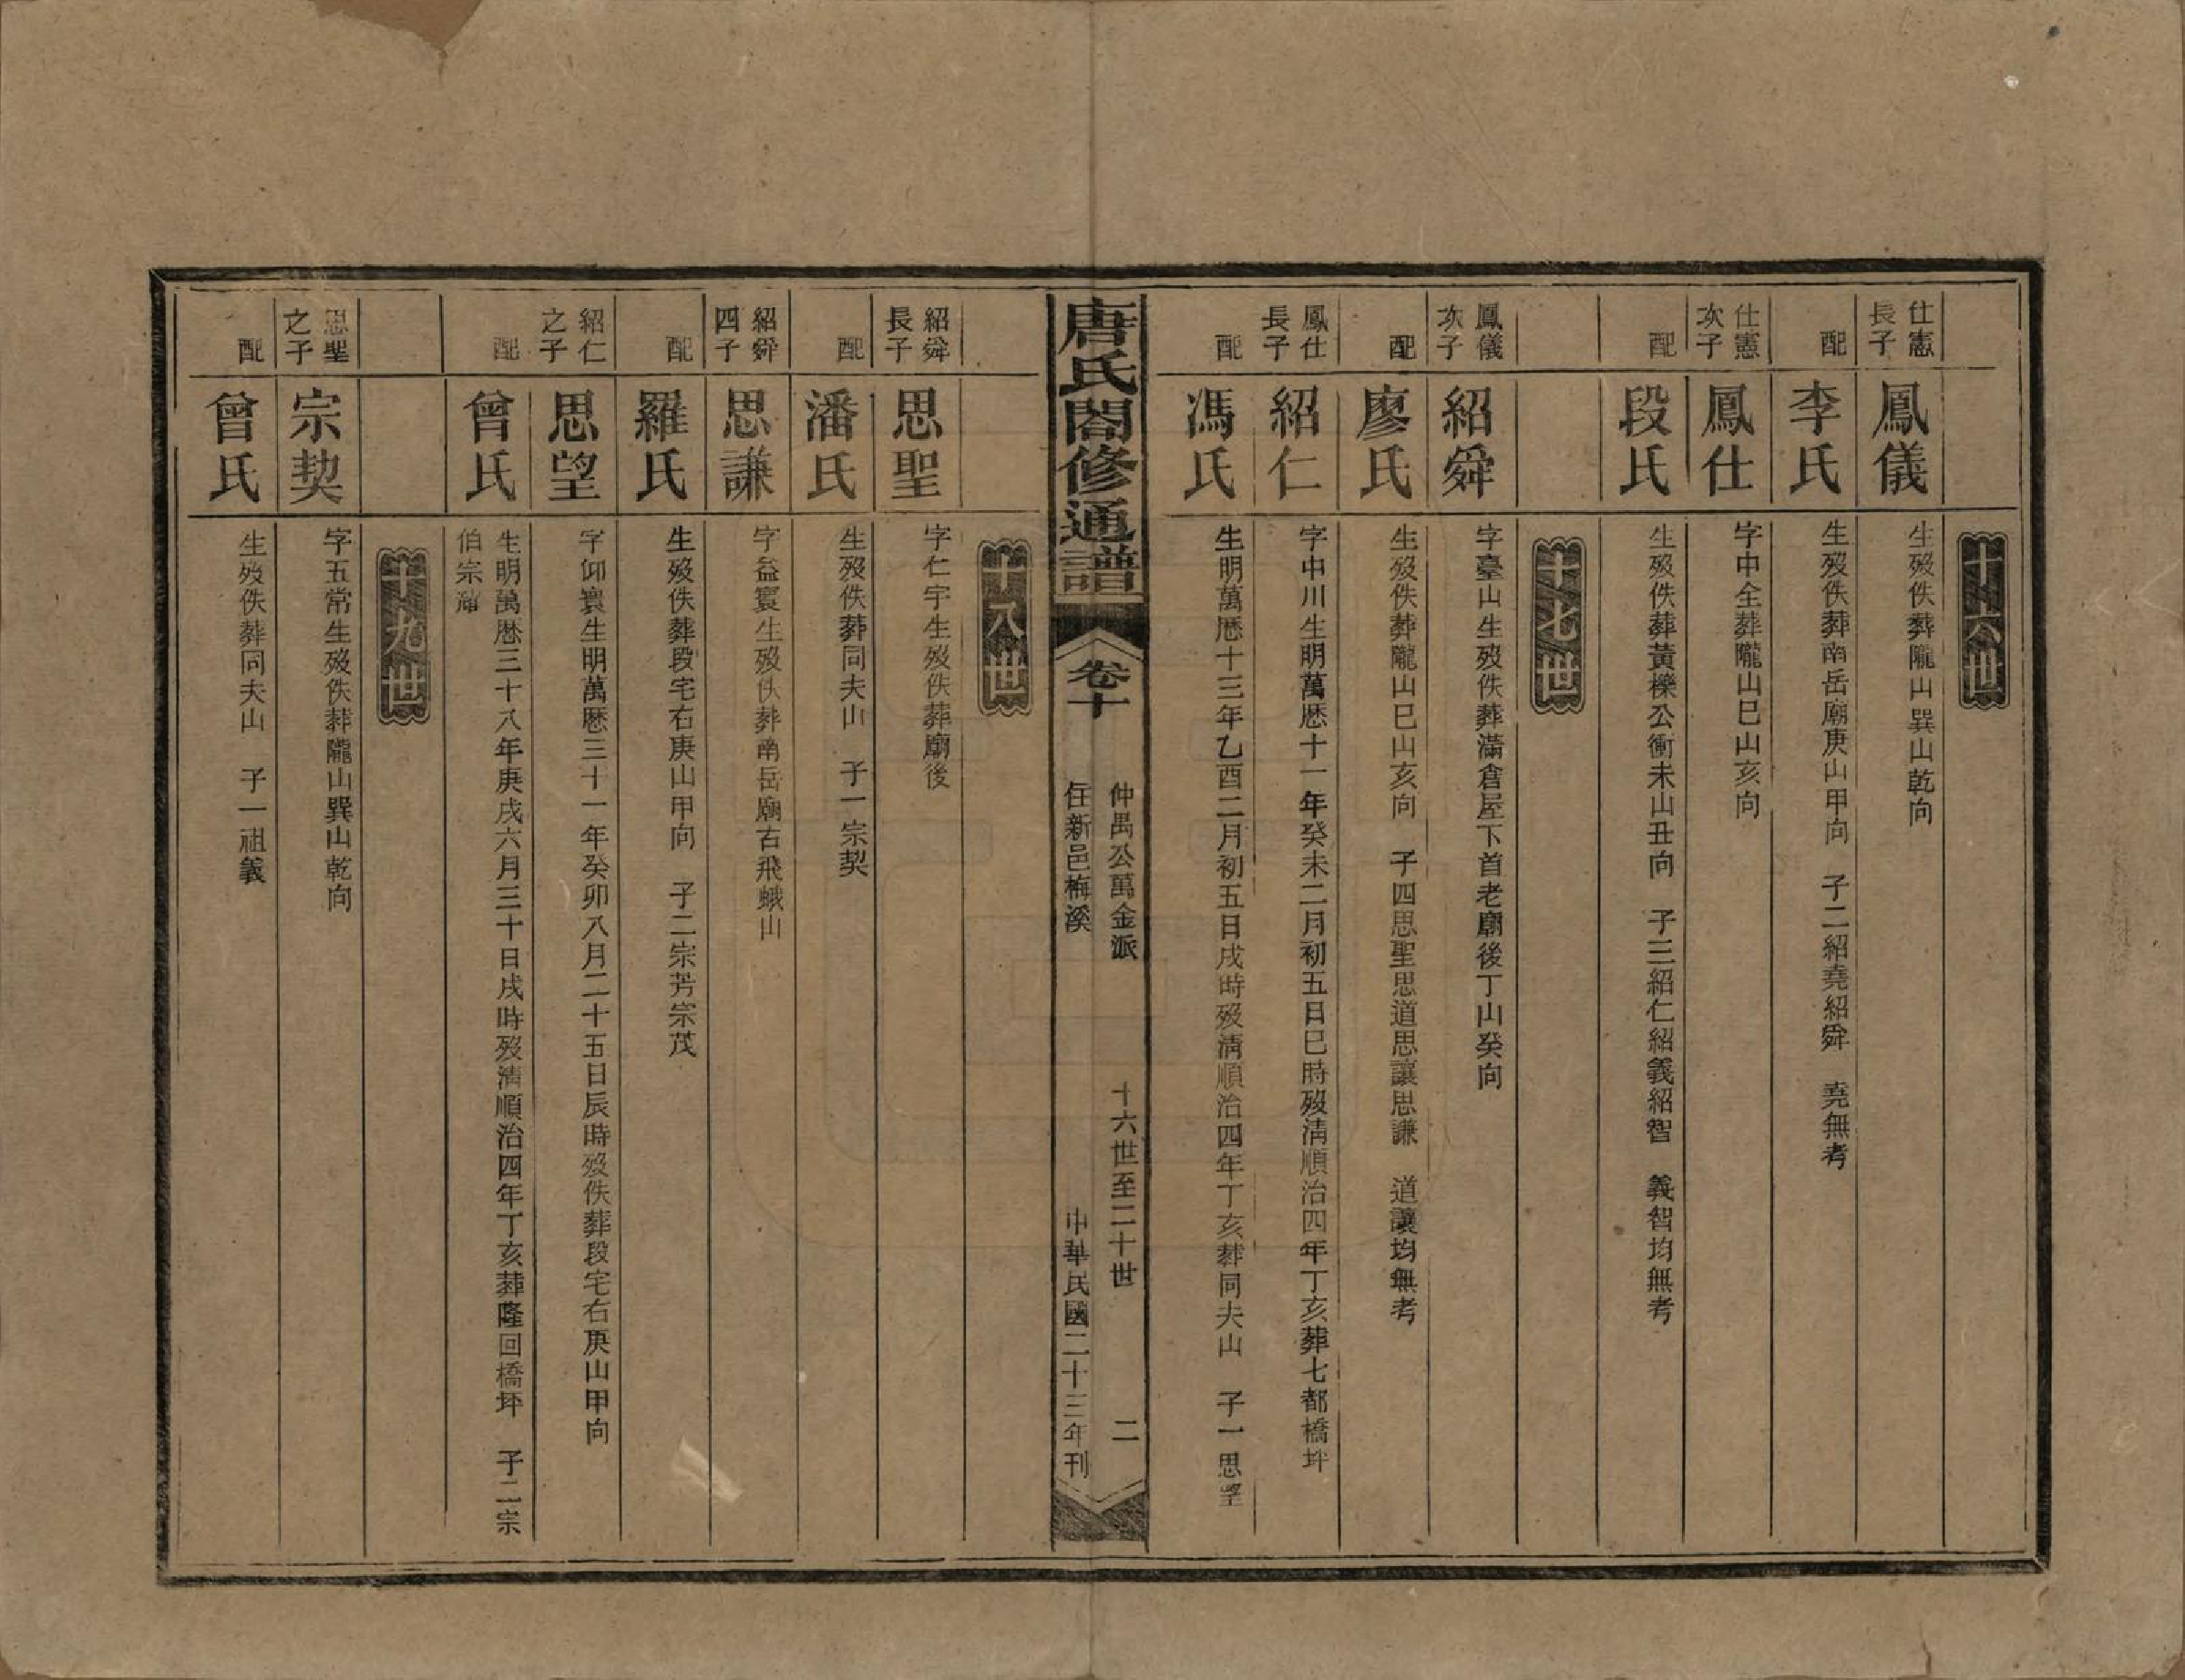 十六世
仕憲長子 鳳儀 生歿佚葬隴山巽山乾向
配 李氏 生歿佚葬南岳廟庚山甲向 子二紹堯紹舜 堯無考
仕憲次子 鳳仕 字中全葬隴山巳山亥向
配 段氏 生歿佚葬黃櫟公衝未山丑向 子三紹仁紹義紹智 義智均無考
十七世
鳳儀次子 紹舜 字臺山生歿佚葬滿倉屋下首老廟後丁山癸向
配 廖氏 生歿佚葬隴山巳山亥向 子四思聖思道思讓思謙 道讓均無考
鳳仕長子 紹仁 字中川生明萬歷十一年癸未二月初五日巳時歿清順治四年丁亥葬七都橋坪
配 馮氏 生明萬歷十三年乙酉二月初五日戌時歿清順治四年丁亥葬同夫山 子一思望
唐氏閤修通譜 卷十
仲禺公萬金派 十六世至二十世 二
任新邑梅溪 中華民國二十三年刊
十八世
紹舜長子 思聖 字仁宇生歿佚葬廟後
配 潘氏 生歿佚葬同夫山 子一宗契
紹舜四子 思謙 字益寰生歿佚葬南岳廟右飛蛾山
配 羅氏 生歿佚葬段宅右庚山甲向 子二宗芳宗茂
紹仁之子 思望 字仰寰生明萬歷三十一年癸卯八月二十五日辰時歿佚葬段宅右庚山甲向
配 曾氏 生明萬歷三十八年庚戌六月三十日戌時歿清順治四年丁亥葬隆回橋坪 子二宗
伯宗
十九世
思聖之子 宗契 字五常生歿佚葬隴山巽山乾向
配 曾氏 生歿佚葬同夫山 子一祖義